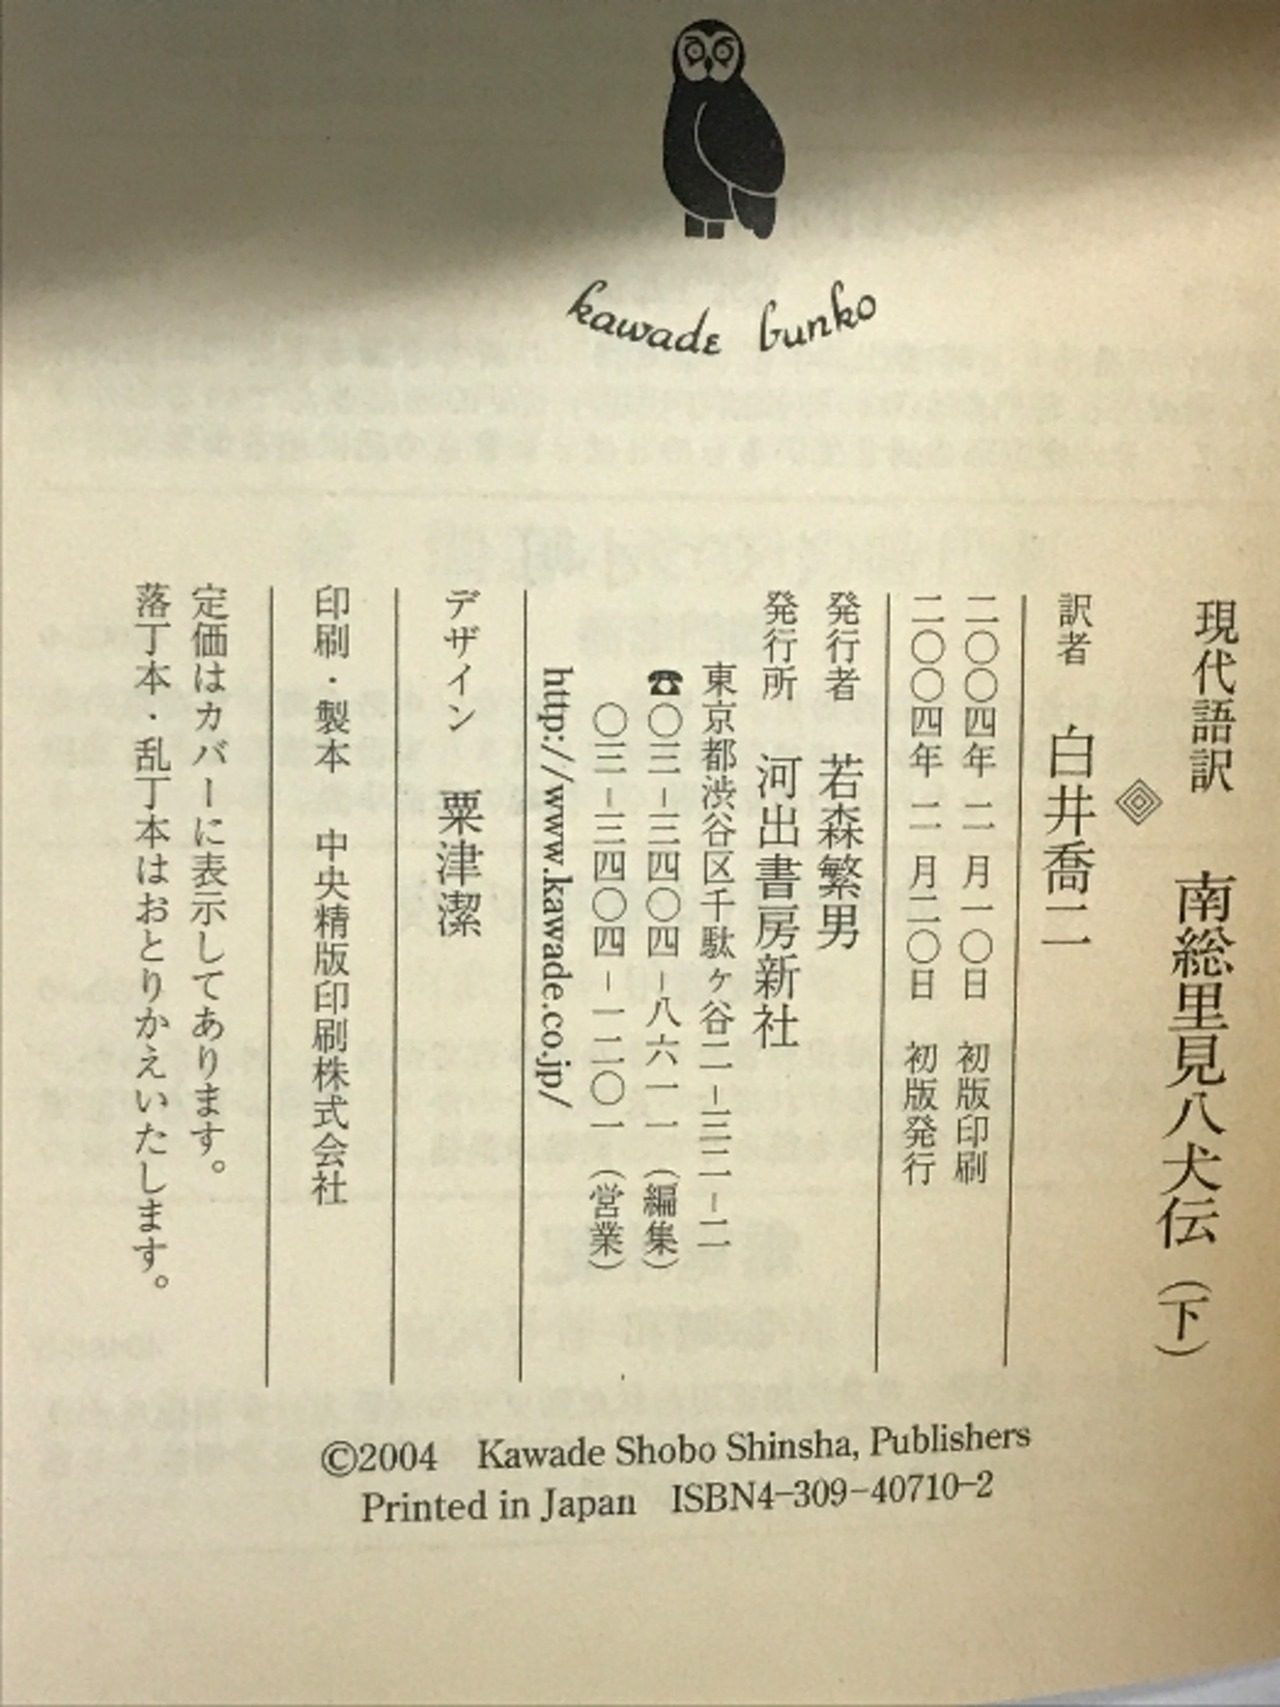 kawade bunko
現代語訳 南総里見八犬伝(下)
訳者 白井喬二
二〇〇四年 二月一〇日 初版印刷
二〇〇四年 二月二〇日 初版発行
発行者 若森繁男
発行所 河出書房新社
東京都渋谷区千駄ヶ谷二-三二-二
☎〇三-三四〇四-八六一一(編集)
〇三-三四〇四-一二〇一(営業)
http://www.kawade.co.jp/
デザイン 粟津潔
印刷・製本 中央精版印刷株式会社
定価はカバーに表示してあります。
落丁本・乱丁本はおとりかえいたします。
©2004 Kawade Shobo Shinsha, Publishers
Printed in Japan ISBN4-309-40710-2